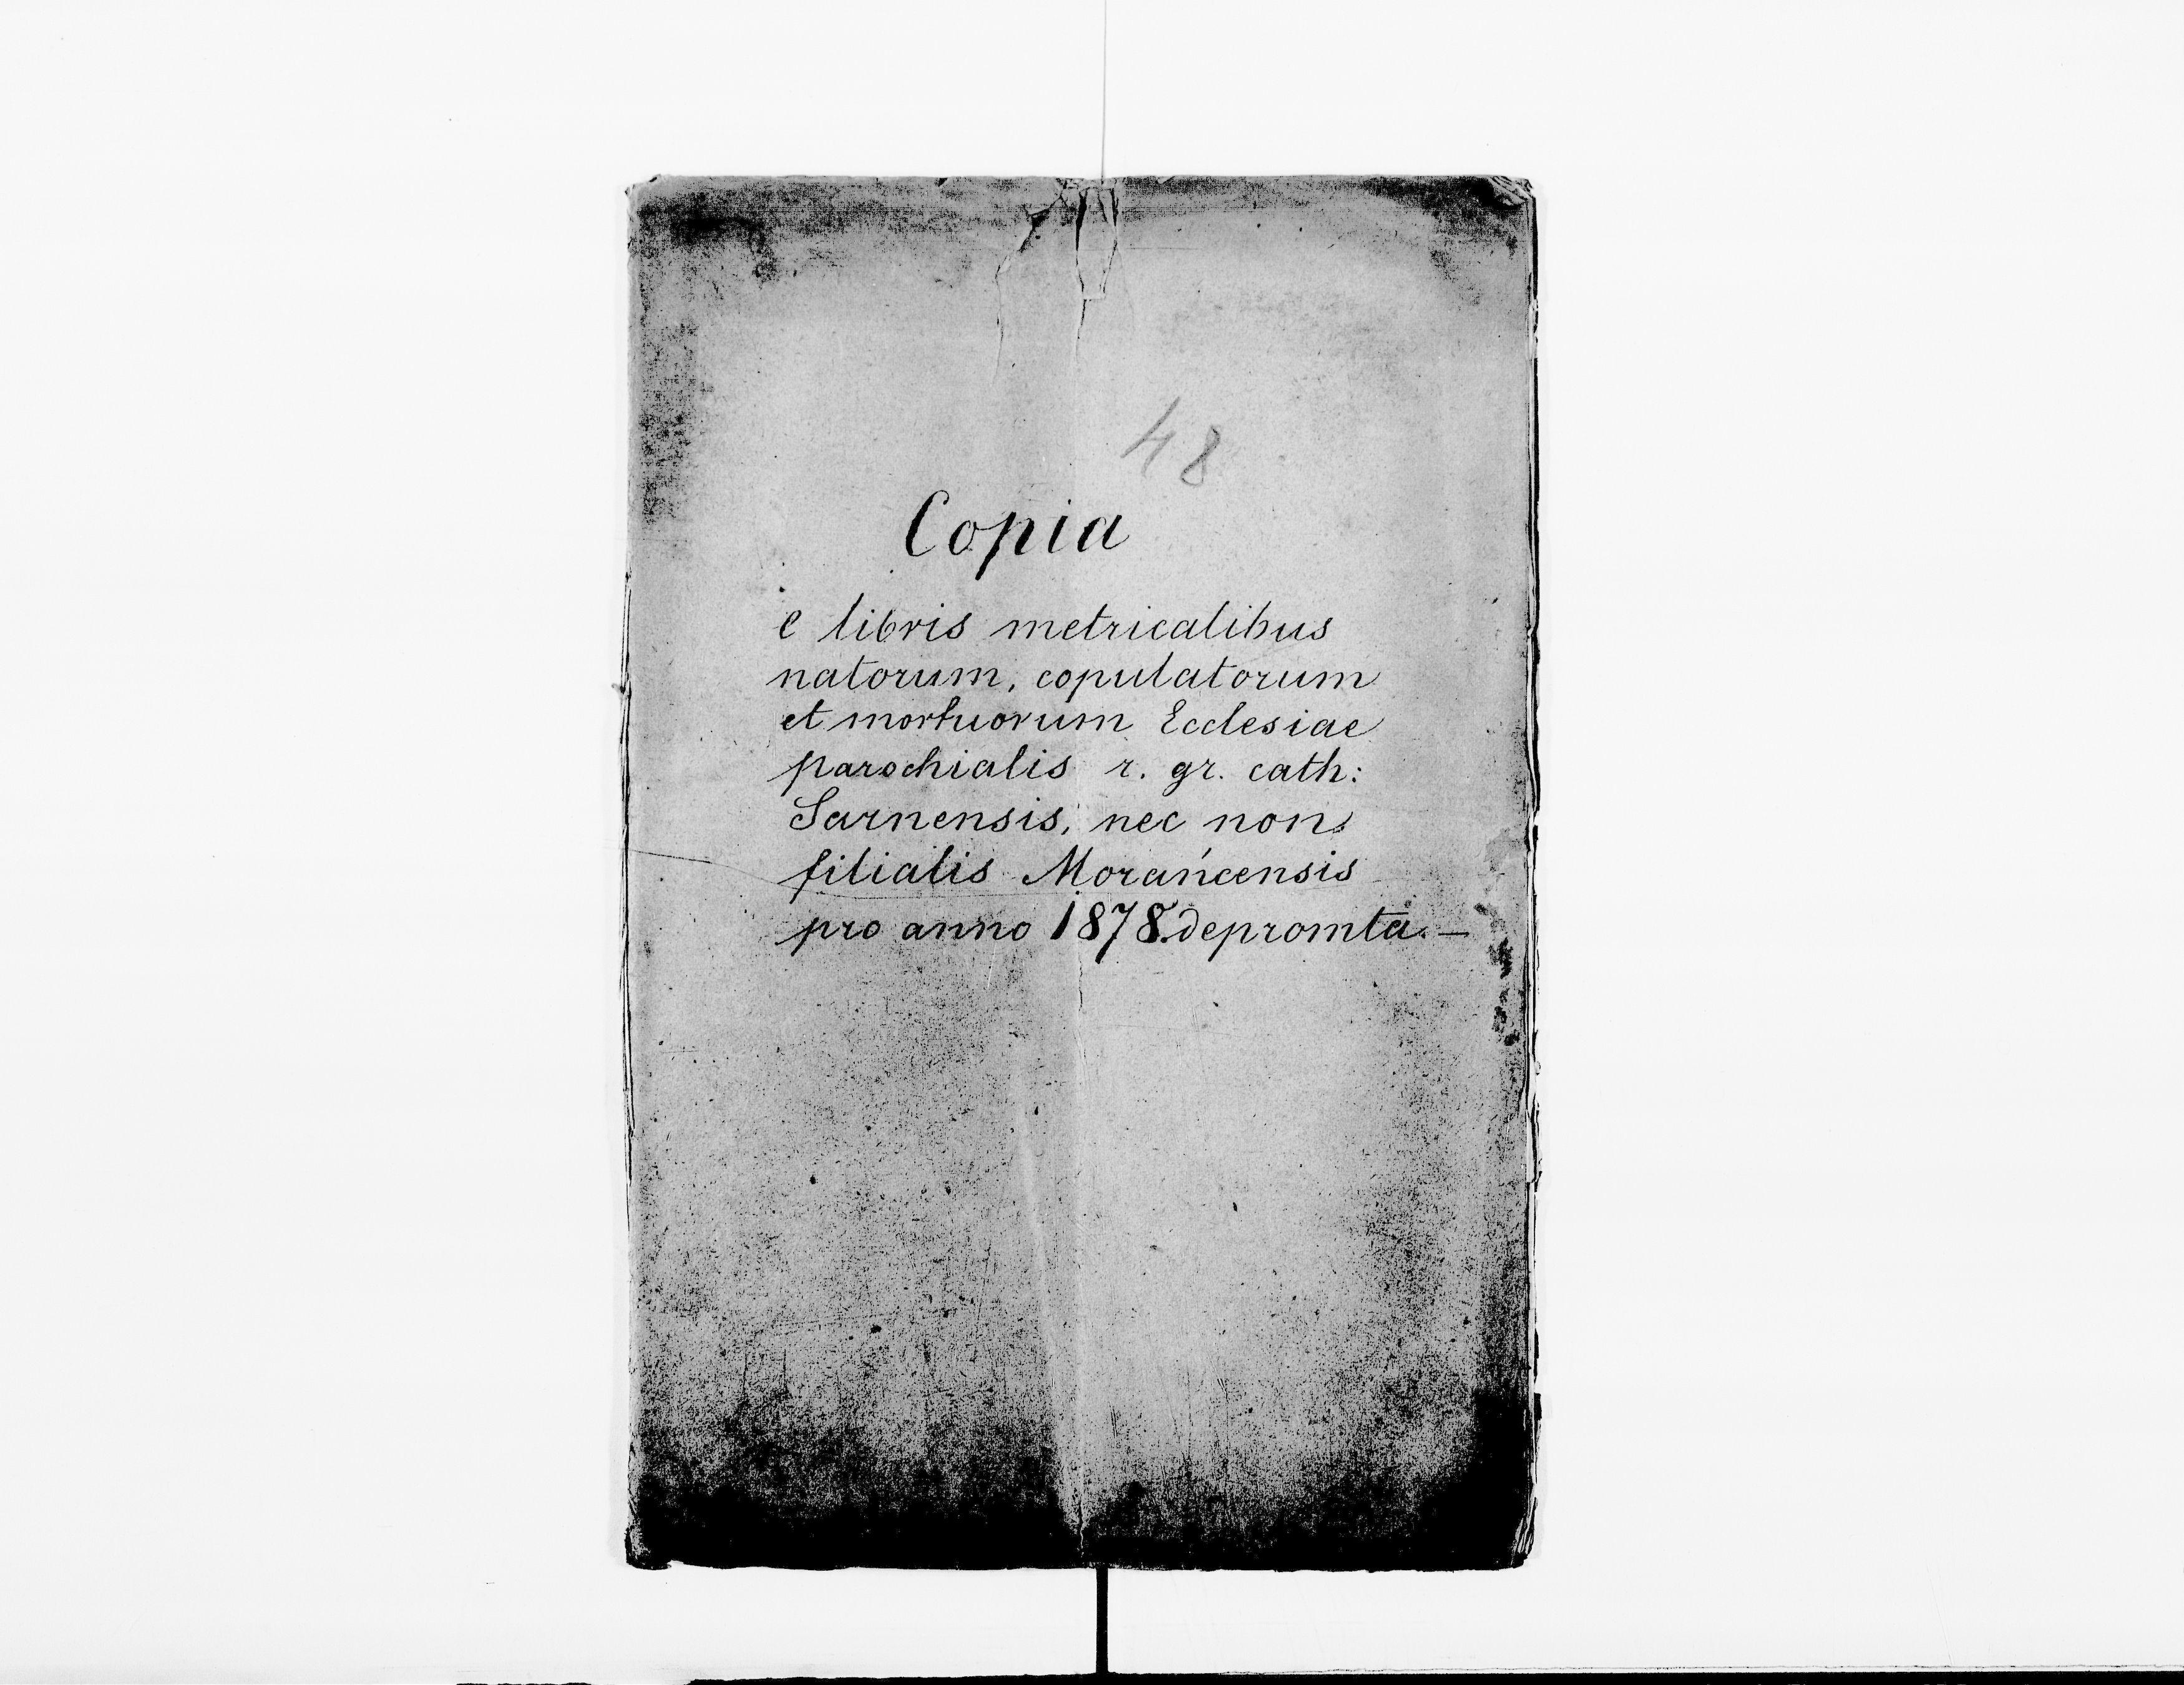 48
Copia
e libris metricalibus
natorum, copulatorum
et mortuorum Ecclesiae
parochialis r. gr. cath:
Sarnensis, nec non
filialis Morańcensis
pro anno 1878. depromta. —